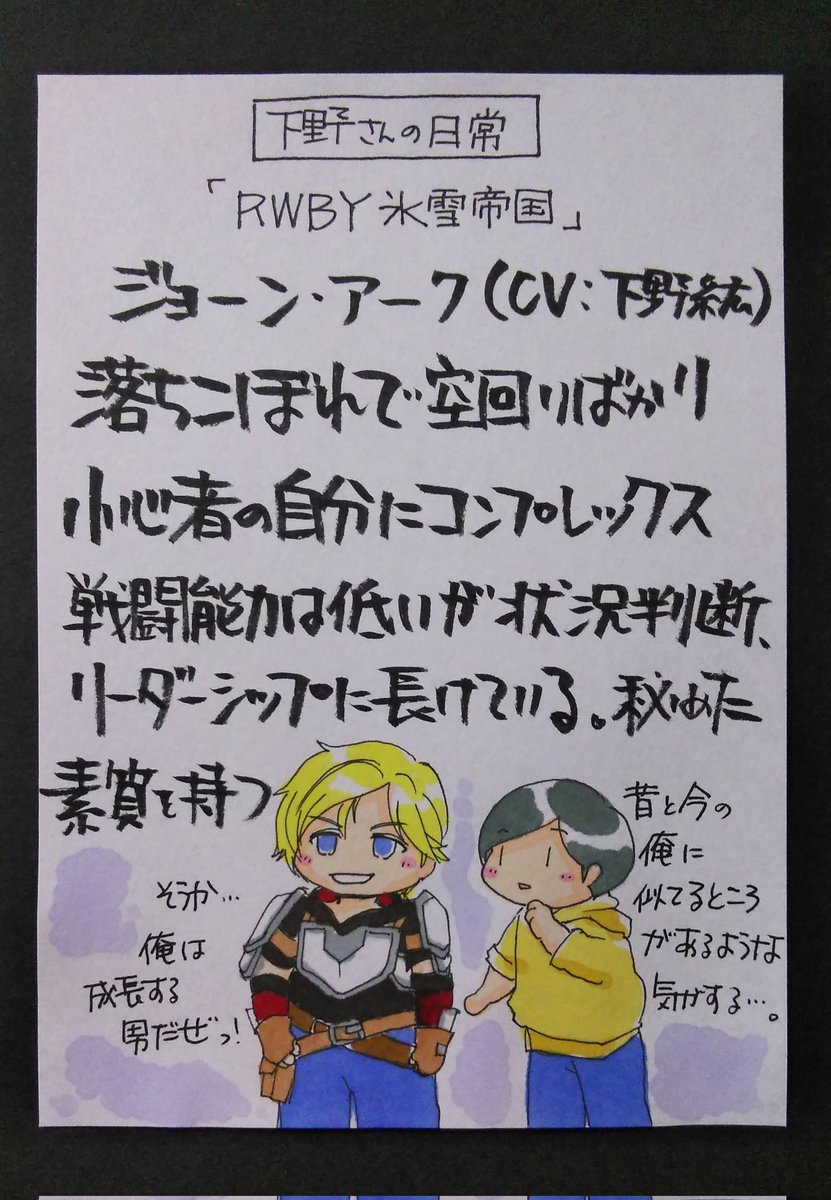 下野さんの日常
「RWBY 氷雪帝国」
ジョーン・アーク(CV:下野紘)
落ちこぼれで空回りばかり
小心者の自分にコンプレックス
戦闘能力は低いが状況判断、
リーダーシップに長けている。秘めた
素質を持つ
そうか…
俺は
成長する
男だぜっ!
昔と今の
俺に
似てるところ
があるような
気がする…。